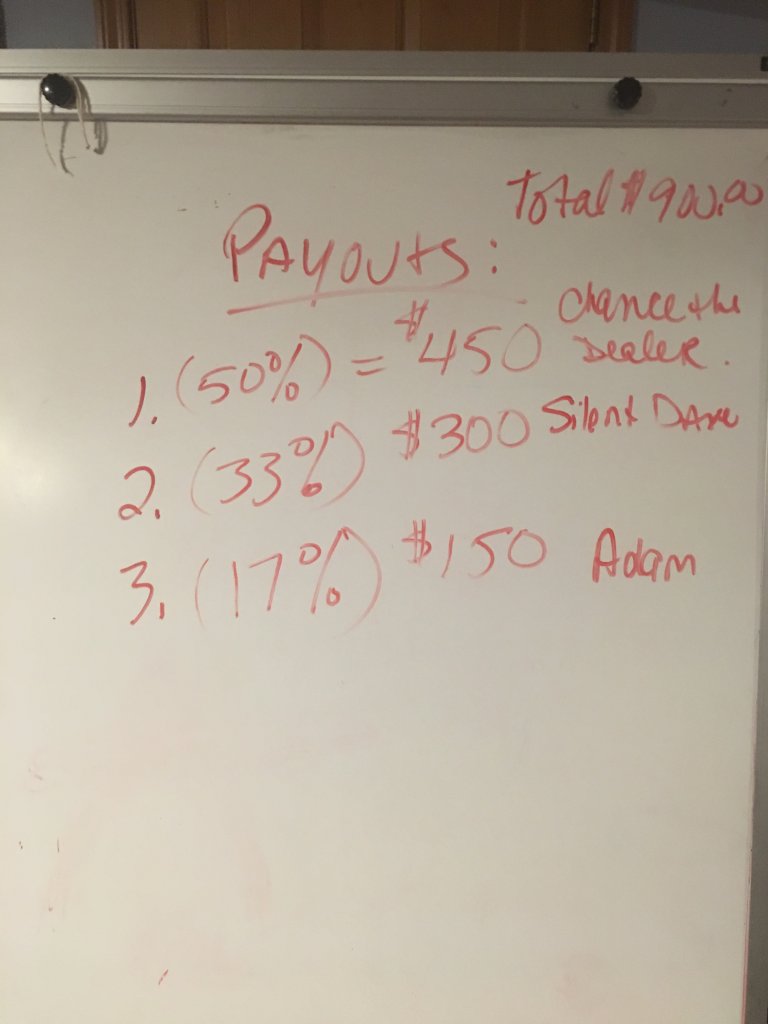 Total $900.00
PAYOUTS:
1. (50%) = $450 Chance the Dealer.
2. (33%) $300 Silent Dave
3. (17%) $150 Adam